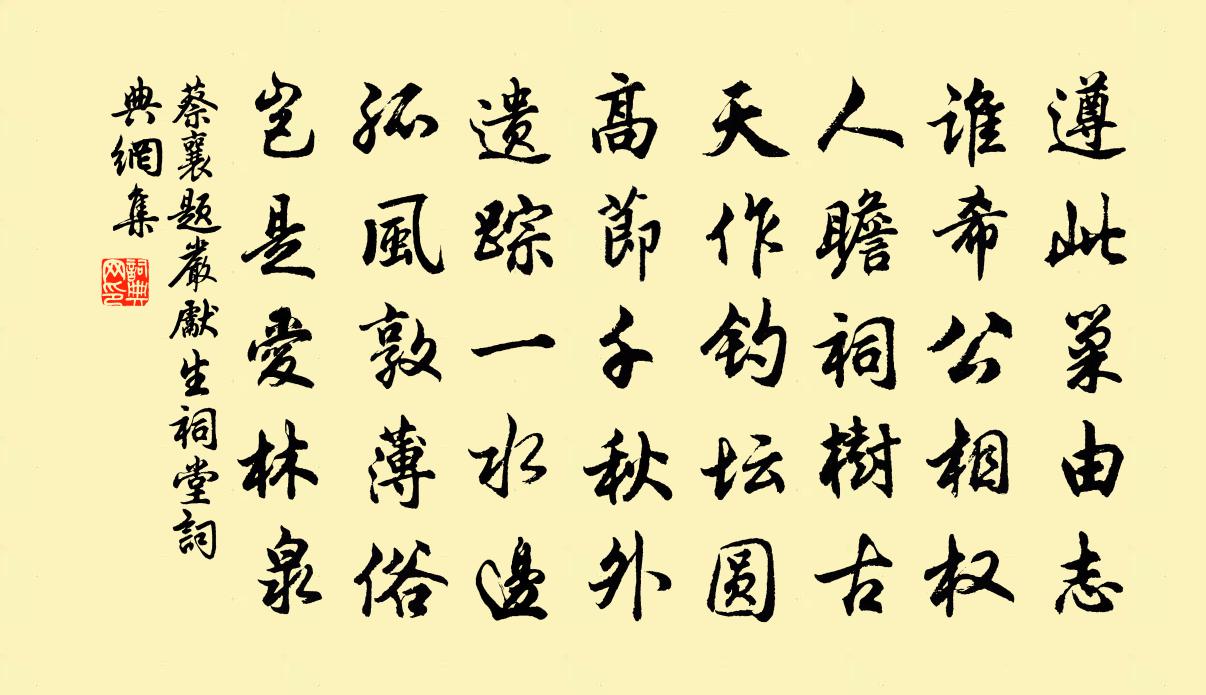 遵此巢由志
谁希公相权
人瞻祠樹古
天作钓坛圆
高節千秋外
遗踪一水邊
孤風敦薄俗
岂是愛林泉
蔡襄題嚴獻生祠堂詞
典網集
詞典网印